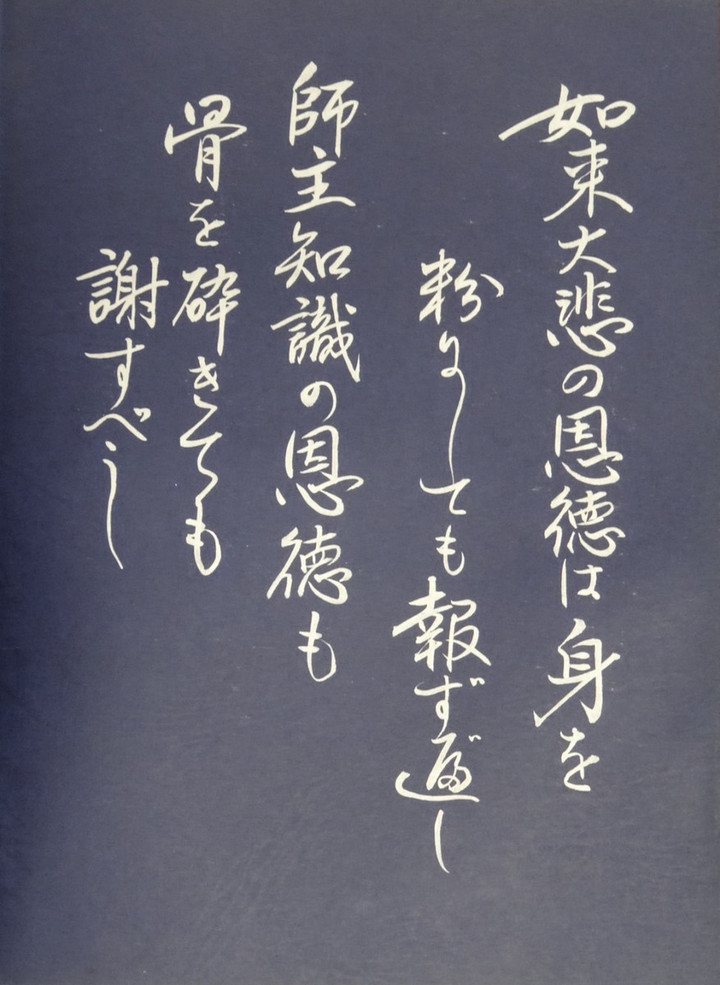 如来大悲の恩徳は身を
粉にしても報ず遍し
師主知識の恩徳も
骨を砕きても
謝すべし